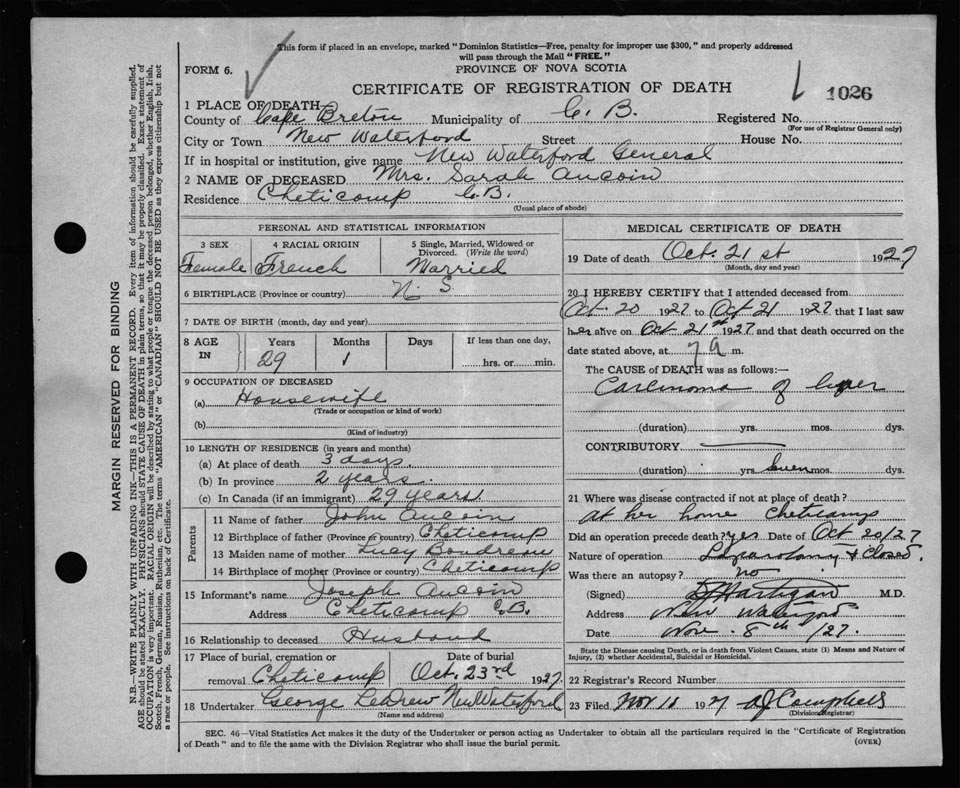 This form if placed in an envelope, marked "Dominion Statistics—Free, penalty for improper use $300," and properly addressed
will pass through the Mail "FREE."
FORM 6.
PROVINCE OF NOVA SCOTIA
CERTIFICATE OF REGISTRATION OF DEATH
1026
1 PLACE OF DEATH—
County of Cape Breton Municipality of C. B. Registered No.
(For use of Registrar General only)
City or Town New Waterford Street House No.
If in hospital or institution, give name New Waterford General
2 NAME OF DECEASED Mrs. Sarah Aucoin
Residence Cheticamp C.B.
(Usual place of abode)
PERSONAL AND STATISTICAL INFORMATION
3 SEX Female
4 RACIAL ORIGIN French
5 Single, Married, Widowed or Divorced. (Write the word) Married
6 BIRTHPLACE (Province or country) N. S.
7 DATE OF BIRTH (month, day and year)
8 AGE IN Years 29 Months 1 Days If less than one day, hrs. or min.
9 OCCUPATION OF DECEASED
(a) Housewife
(Trade or occupation or kind of work)
(b)
(Kind of industry)
10 LENGTH OF RESIDENCE (in years and months)
(a) At place of death 3 days.
(b) In province 2 years.
(c) In Canada (if an immigrant) 29 years.
Parents
11 Name of father John Aucoin
12 Birthplace of father (Province or country) Cheticamp
13 Maiden name of mother Lucy Boudreau
14 Birthplace of mother (Province or Country) Cheticamp
15 Informant's name Joseph Aucoin
Address Cheticamp C.B.
16 Relationship to deceased Husband
17 Place of burial, cremation or removal Cheticamp Date of burial Oct. 23rd 1927
18 Undertaker George LeDrew New Waterford
(Name and address)
MEDICAL CERTIFICATE OF DEATH
19 Date of death Oct. 21st 1927
(Month, day and year)
20 I HEREBY CERTIFY that I attended deceased from
Oct 20 1927 to Oct 21 1927 that I last saw
her alive on Oct 21st 1927 and that death occurred on the
date stated above, at 7 a m.
The CAUSE of DEATH was as follows:—
Carcinoma of liver
(duration) yrs. mos. dys.
CONTRIBUTORY
(duration) yrs seven mos. dys.
21 Where was disease contracted if not at place of death?
At her home Cheticamp
Did an operation precede death? yes Date of Oct 20/27
Nature of operation Laparotomy & Closed.
Was there an autopsy? no
(Signed) Hartigan M.D.
Address New Waterford
Date Nov. 8th /27.
State the Disease causing Death, or in death from Violent Causes, state (1) Means and Nature of
Injury, (2) whether Accidental, Suicidal or Homicidal.
22 Registrar's Record Number
23 Filed Nov 10 1927 Campbell
(Division Registrar)
SEC. 46—Vital Statistics Act makes it the duty of the Undertaker or person acting as Undertaker to obtain all the particulars required in the "Certificate of Registration
of Death" and to file the same with the Division Registrar who shall issue the burial permit.
(OVER)
MARGIN RESERVED FOR BINDING
N.B.—WRITE PLAINLY WITH UNFADING INK—THIS IS A PERMANENT RECORD. Every item of information should be carefully supplied.
AGE should be stated EXACTLY. PHYSICIANS should STATE CAUSE OF DEATH in plain terms, so that it may be properly classified. Exact statement of
OCCUPATION is very important. RACIAL ORIGIN will be described by stating to what people or tongue the deceased person belonged, whether English, Irish,
Scotch, French, German, Russian, Ruthenian, etc. The terms "AMERICAN" or "CANADIAN" SHOULD NOT BE USED as they express citizenship but not
a race or people. See instructions on back of Certificate.